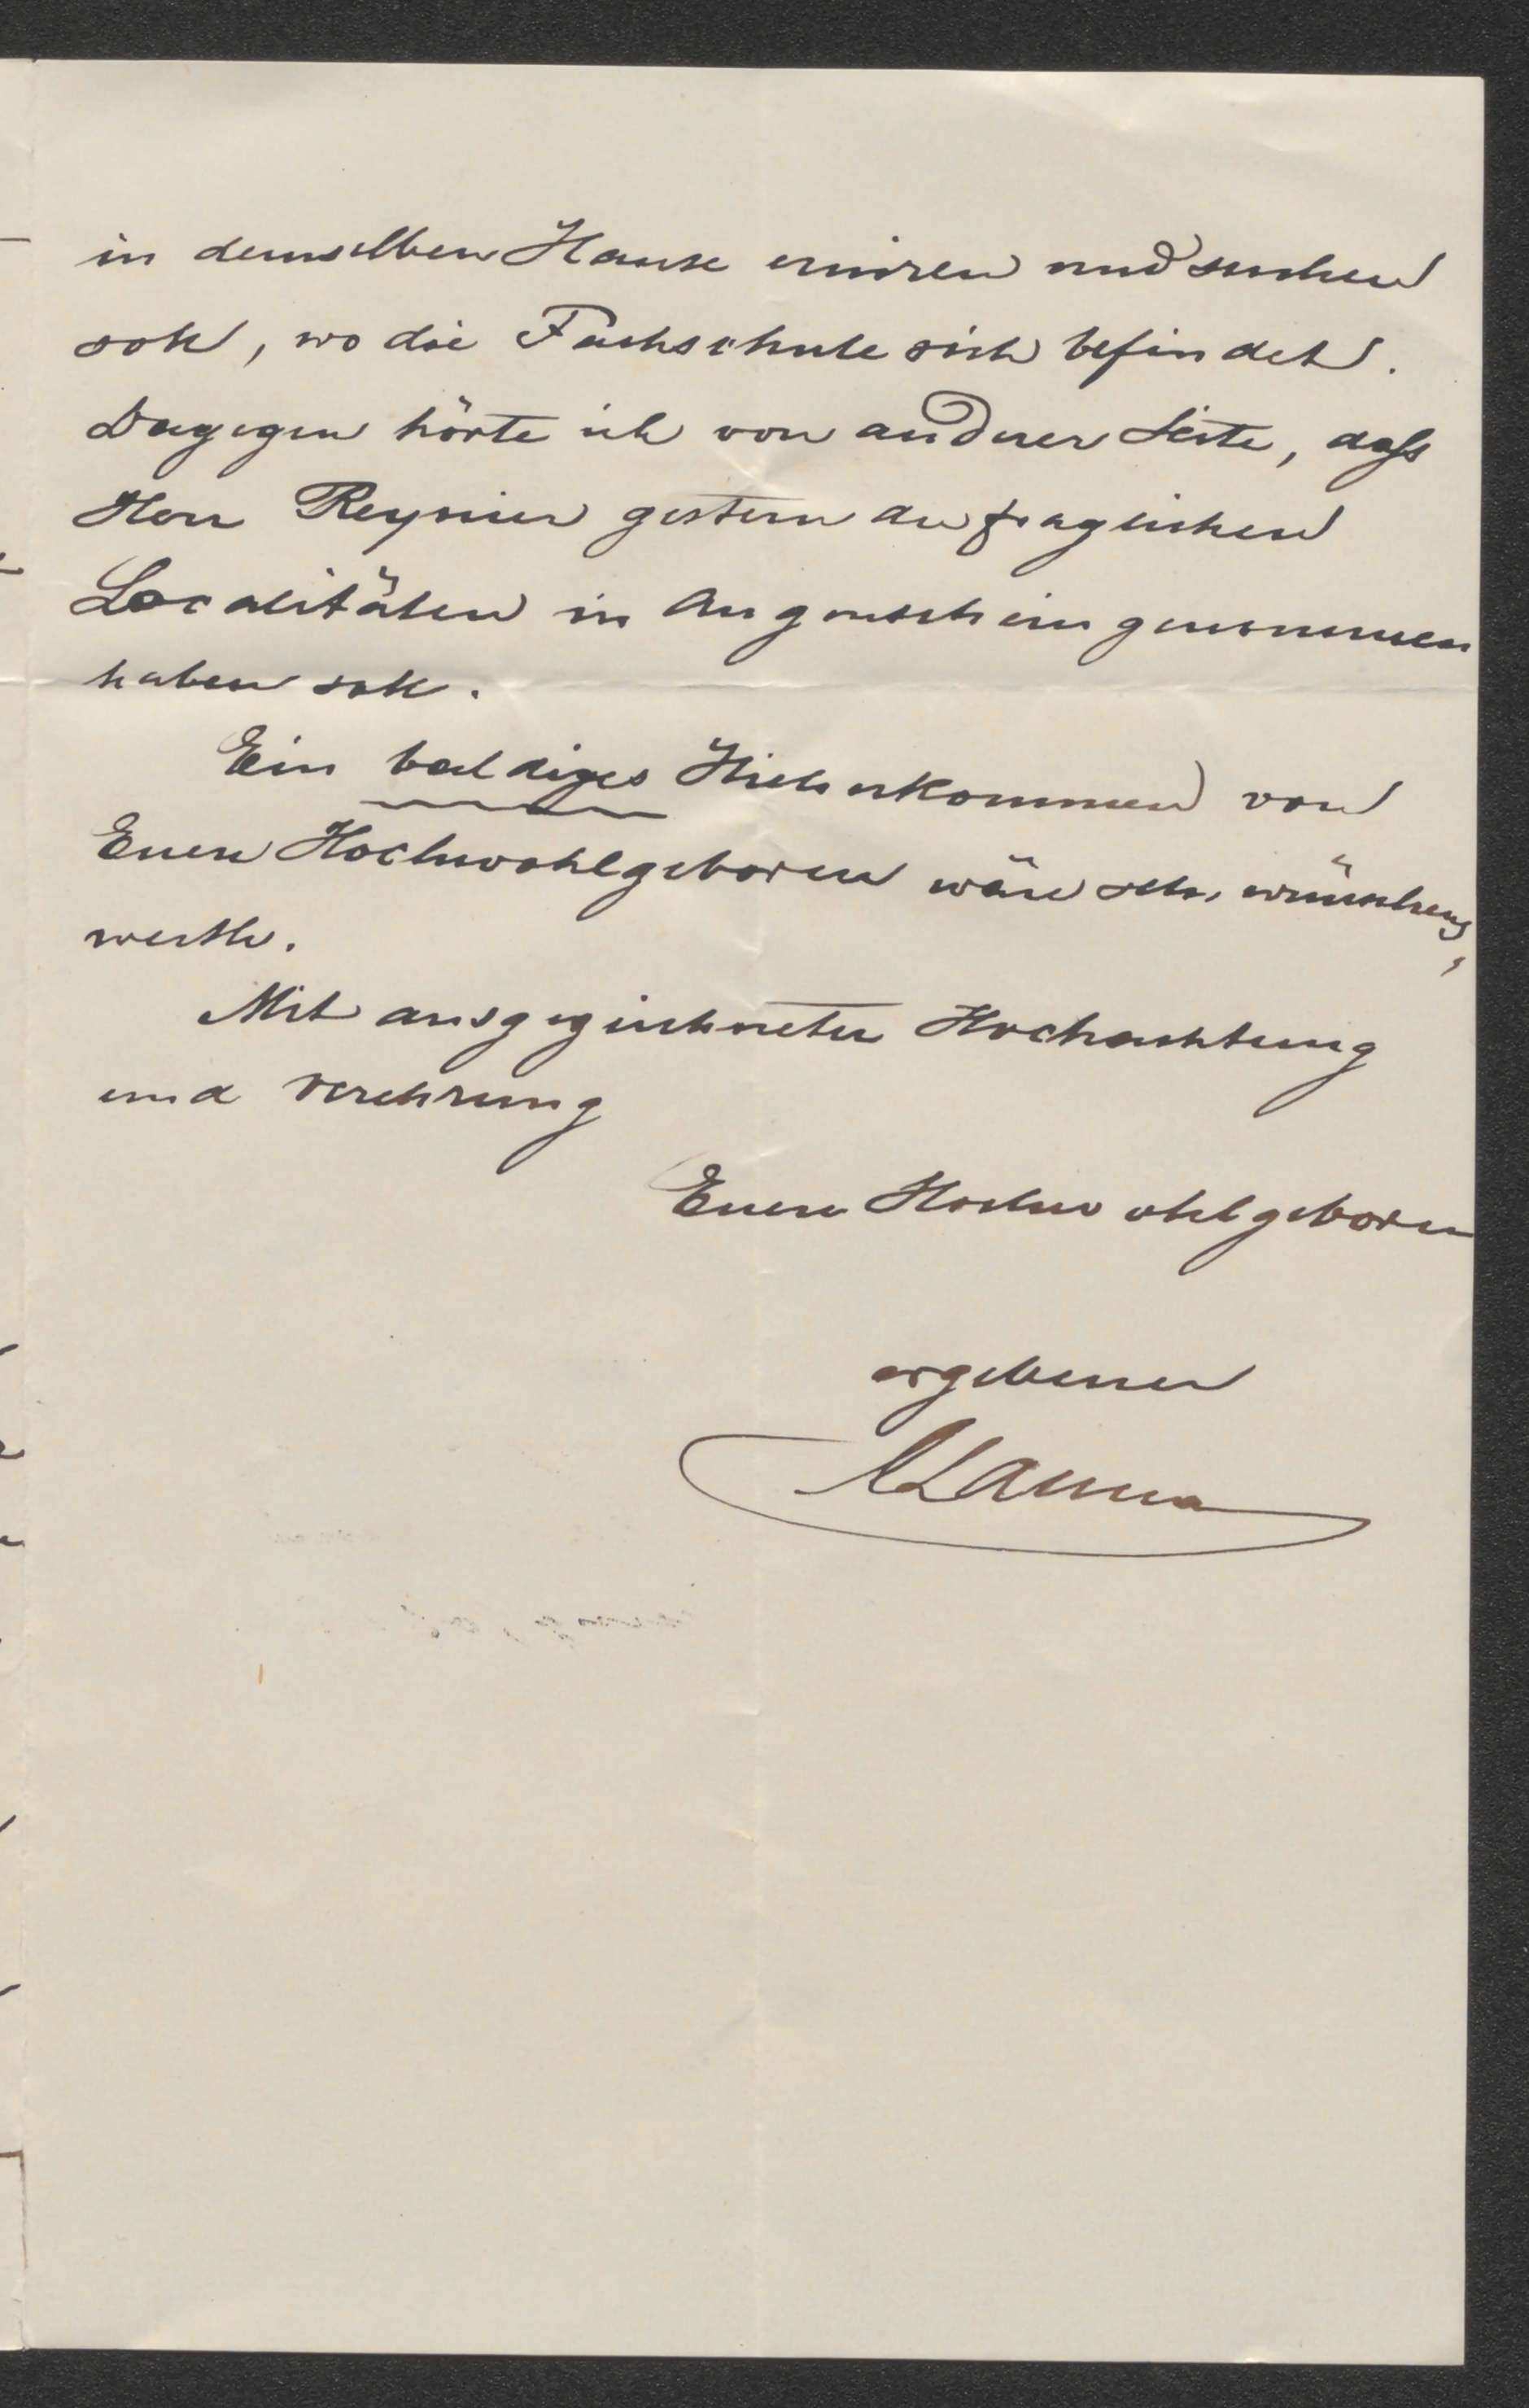 in demselben Hause eruiren und suchen
soll, wo die Fachschule sich befindet.
Dagegen hörte ich von anderer Seite, daß
Herr Reynier gestern die fraglichen
Localitäten in Augenschein genommen
haben soll.
Ein baldiges Hieherkommen von
Euere Hochwohlgeboren wäre sehr wünschens
werth.
Mit ausgezeichneter Hochachtung
und Verehrung
Euere Hochwohlgeboren
ergebener
Lanna